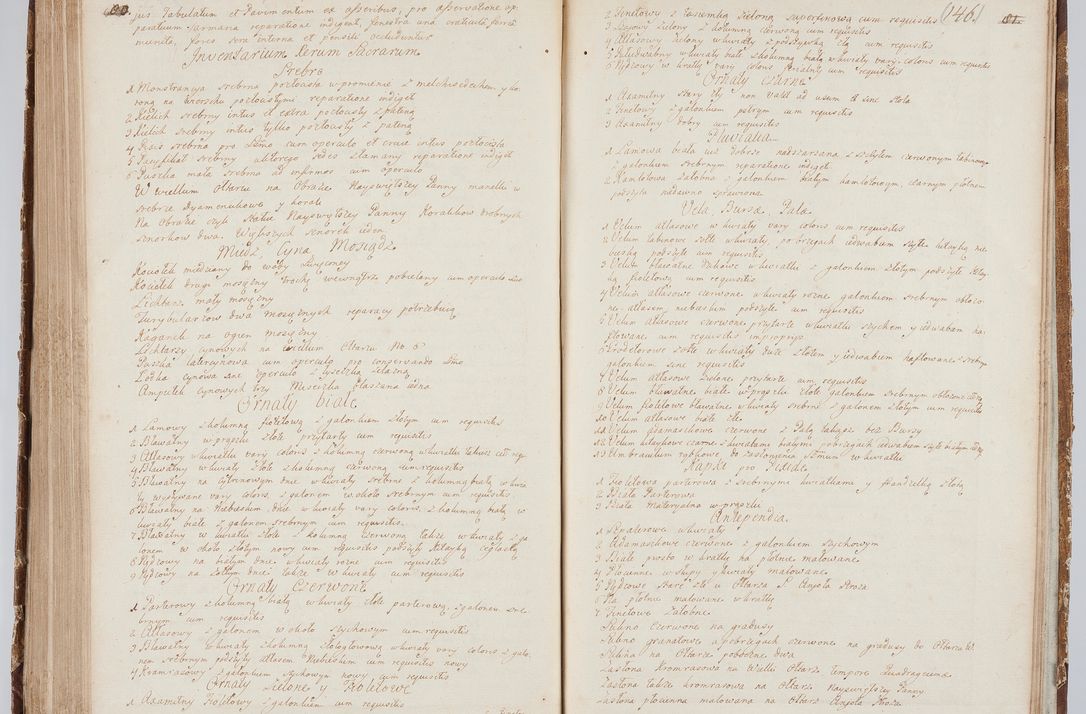 80.
jus Tabulatum et Pavimentum ex asseribus, pro asservatione ap-
paratuum furmaria reparatione indiget, fenestra una craticulâ ferreâ
munita, fores sera interna et pensili occluduntur
Inventarium Rerum Sacrarum
Srebro
1 Monstrancya srebrna pozłocista w promienie z melchisedechem y ko-
roną na wierzchu pozłocistymi reparatione indiget
2 Kielich srebrny intus et extra pozłocisty z pateną
3 Kielich srebrny intus tylko pozłocisty z pateną
4 cum operculo et cruce intus pozłocista
5 Pacyfikał srebrny którego pedes złamany reparatione indiget
6 Puszka mała srebrna ad infirmos cum operculo
W wielkim Ołtarzu na Obrazie Nayswiętszey Panny manelli w
srebrze Dyamenikowe y korale
Na Obrazie czyli Statui Nayswiętszey Panny Koralikow drobnych
sznorkow dwa. Większych sznorek ieden
Miedź, Cyna, Mosiądz
Kociołek miedziany do wody święconey
Kociołek drugi mosiężny trochę wewnątrz pobielany cum operculo
Lichtarz mały mosiężny
Turybularzow dwa mosiężnych reparacyi potrzebuią
Kaganek na ogien mosiężny
Lichtarzy cynowych na wielkim Ołtarzu No 6
Puszka cum operculo pro conservando
Łodka cynowa sine operculo z łyszczką żelazną
Ampułek cynowych trzy Miseczka blaszana iedna
Ornaty białe
1 Lamowy z kolumną fioletową z galonkiem złotym cum requisitis
2 Bławatny w prążki złote przytarty cum requisitis
3 Atłasowy w kwiatki vary coloris z kolumną czerwoną w kwiatki takież cum req.
4 Bławatny w kwiaty złote z kolumną czerwoną cum requisitis
5 Bławatny na cytrynowym dnie w kwiaty srebrne z kolumną białą w kwia-
ty wysywane vary coloris, z galonem w około srebrnym cum requisitis
6 Bławatny na Niebieskim dnie w kwiaty vary coloris, z kolumną białą w
kwiaty białe z galonem srebrnym cum requisitis
7 Bławatny w kwiatki złote z kolumną czerwoną także w kwiaty z ga-
lonem w około złotym nowy cum requisitis podszyty kitayką ceglastą
8 Rypsowy na białym dnie w kwiaty rożne cum requisitis
9 Rypsowy na żołtym dnie także w kwiaty cum requisitis
Ornaty Czerwone
1 Parterowy z kolumną białą w kwiaty złote parterową, z galonem sre-
brnym cum requisitis
2 Atłasowy z galonem w około szychowym cum requisitis
3 Bławatny w kwiaty z kolumną złotogłowową w kwiaty vary coloris, z galo-
nem srebrnym podszyty atłasem Niebieskim cum requisitis nowy
4 Kromrasowy z galonkiem szychowym nowy cum requisitis
Ornaty Zielone y Fioletowe
1 Axamitny Fioletowy z galonkiem złotym cum requisitis
(146) 81.
2 Tenetowy z tasiemką zieloną cum requisitis
3 zielony z kolumną czerwoną cum requisitis
4 Atłasowy zielony w kwiaty z podszywką złą cum requisitis
5 Półiedwabny w kwiaty białe z kolumną białą w kwiaty vary coloris cum requisitis
6 Rypsowy w kratki vary coloris cum requisitis
Ornaty czarne
1 Axamitny stary zły non valet ad usum et sine stola
2 Tenetowy z galonkiem pstrym cum requisitis
3 Axamitny dobry cum requisitis
Pluvialia
1 Lamowa biała iuż dobrze nadszarzana z szczytem czerwonym tabinowym
z galonkiem srebrnym reparatione indiget
2 Kamlotowa żałobna z galonkiem białym kamlotowym, czarnym płotnem
podszyta niedawno sprawiona
Vela, Bursæ, Palæ
1 Velum atłasowe w kwiaty vary coloris cum requisitis
2 Velum tabinowe żołte w kwiaty, po brzegach iedwabiem szyte kitayką nie-
bieską podszyte cum requisitis
3 Velum w kwiatki z galonkiem złotym podszyte kitayką
fioletową cum requisitis
4 Velum atłasowe czerwone w kwiaty rożne galonkiem srebrnym obłożo-
ne atłasem niebieskim podszyte cum requisitis
5 Velum atłasowe czerwone przytarte w kwiatki szychem y iedwabem ha-
ftowane cum requisitis improprys
6 żołte w kwiaty duże złotem y iedwabiem haftowane z srebrnym
galonkiem sine requisitis
7 Velum atłasowe zielone przytarte cum requisitis
8 Velum bławatne białe w prążki złote galonkiem srebrnym obłożone
9 Velum fioletowe bławatne w kwiaty srebrne z galonem złotym cum requisitis
10 Velum atłasowe białe złe
11 Velum adamaszkowe czerwone z Palą takąż bez Bursy
12 Velum kitaykowe czarne z kwiatami białymi po brzegach iedwabiem szyte białym
13 Umbraculum rąbkowe do zasłonienia w kwiatki
Kapki pro Puside
1 Fioletowa parterowa z srebrnymi kwiatkami y frandzelką złotą
2 Biała Parterowa
3 Biała materyalna w prążki
Antependia
1 w kwiaty
2 Adamaszkowe czerwone z galonkiem szychowym
3 Białe prosto w kratki na płotnie malowane
4 Płocienne w słupy y kwiaty malowane
5 Rypsowe stare złe u Ołtarza S. Anioła Stroża
6 Na płotnie malowane w kratkę
7 Tenetowe żałobne
Sukno czerwone na gradusy
Sukno granatowe a po brzegach czerwone na gradusy do Ołtarza W.
Suknia na Ołtarze poboczne dwa
Zasłona kromrasowa na Wielki Ołtarz tempore Quadragesimæ
Zasłona także kromrasowa na Ołtarz Nayswiętszey Panny
Zasłona płocienna malowana na Ołtarz Anioła Stroża